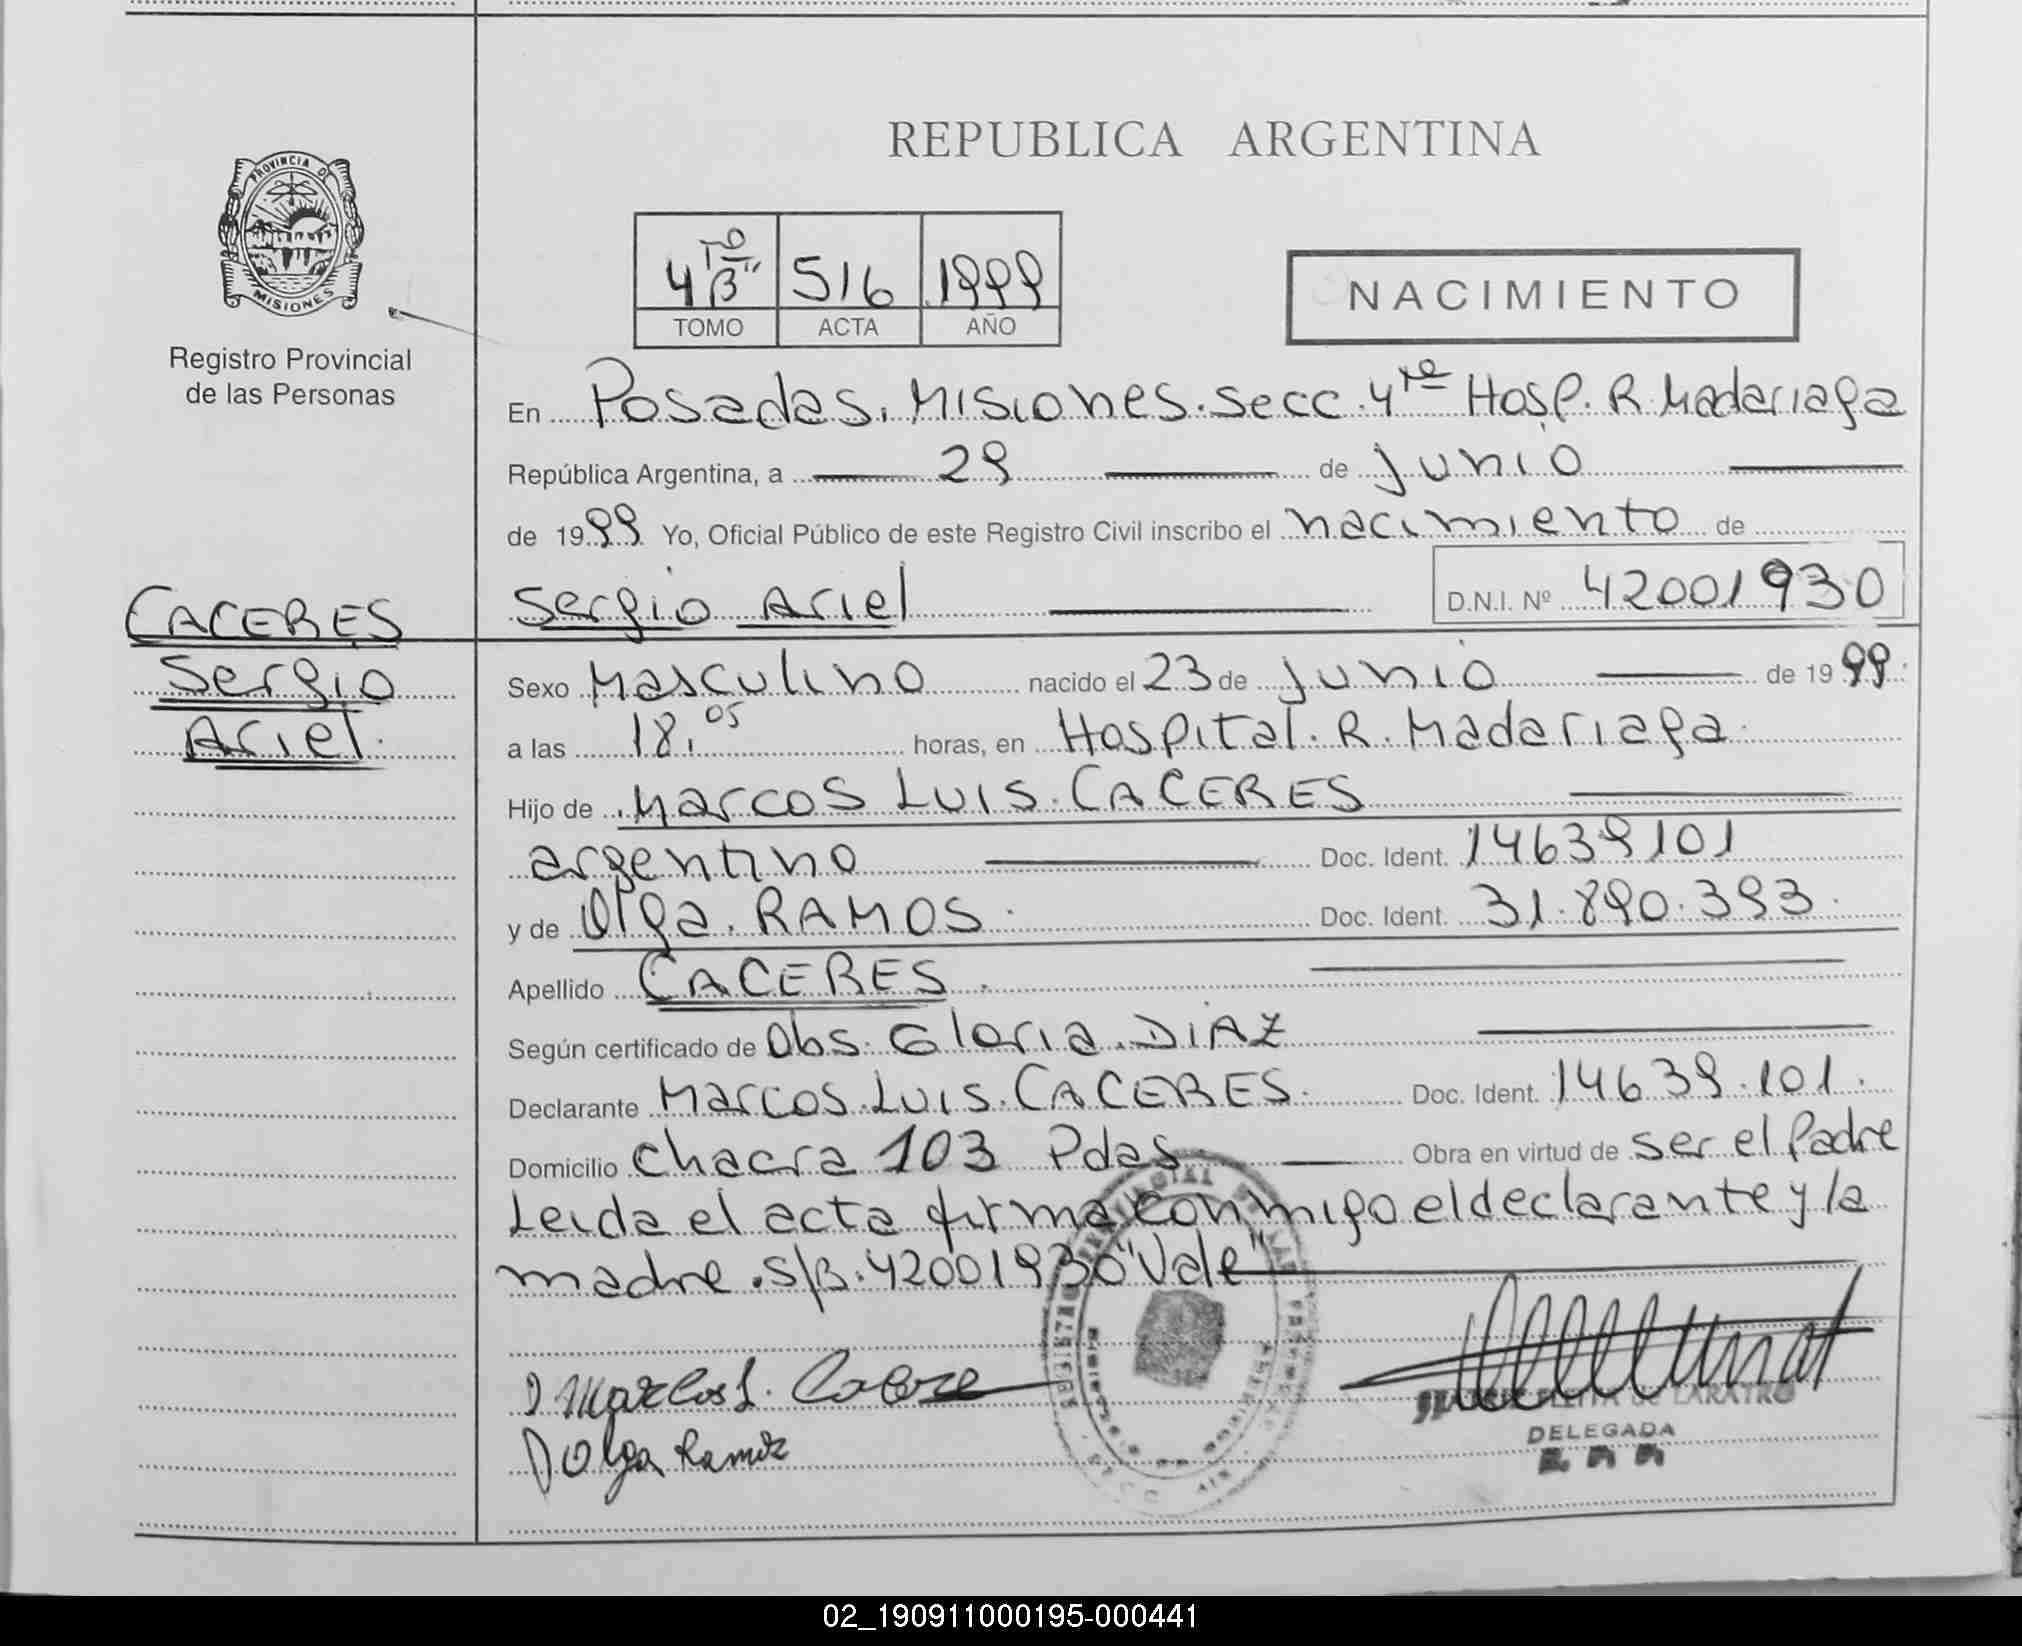 REPUBLICA ARGENTINA
PROVINCIA DE
MISIONES
Registro Provincial
de las Personas
4 to B" 516 1999
TOMO ACTA AÑO
NACIMIENTO
En Posadas. Misiones. secc. 4ta Hosp. R. Madariaga
República Argentina, a 29 de junio
de 1999 Yo, Oficial Público de este Registro Civil inscribo el nacimiento de
Sergio Ariel D.N.I. Nº 42001930
CACERES
Sergio
Ariel.
Sexo Masculino nacido el 23 de junio de 1999
a las 18.05 horas, en Hospital. R. Madariaga.
Hijo de Marcos Luis. CACERES
argentino Doc. Ident. 14639101
y de Olga. RAMOS. Doc. Ident. 31.890.393.
Apellido CACERES.
Según certificado de Obs. Gloria. DIAZ
Declarante Marcos. Luis. CACERES. Doc. Ident. 14639.101.
Domicilio chacra 103 Pdas Obra en virtud de ser el Padre
Leida el acta firma conmigo el declarante y la
madre. s/B. 42001930 "Vale"
Marcos L.
Olga Ramoz
DELEGADA
02_190911000195-000441